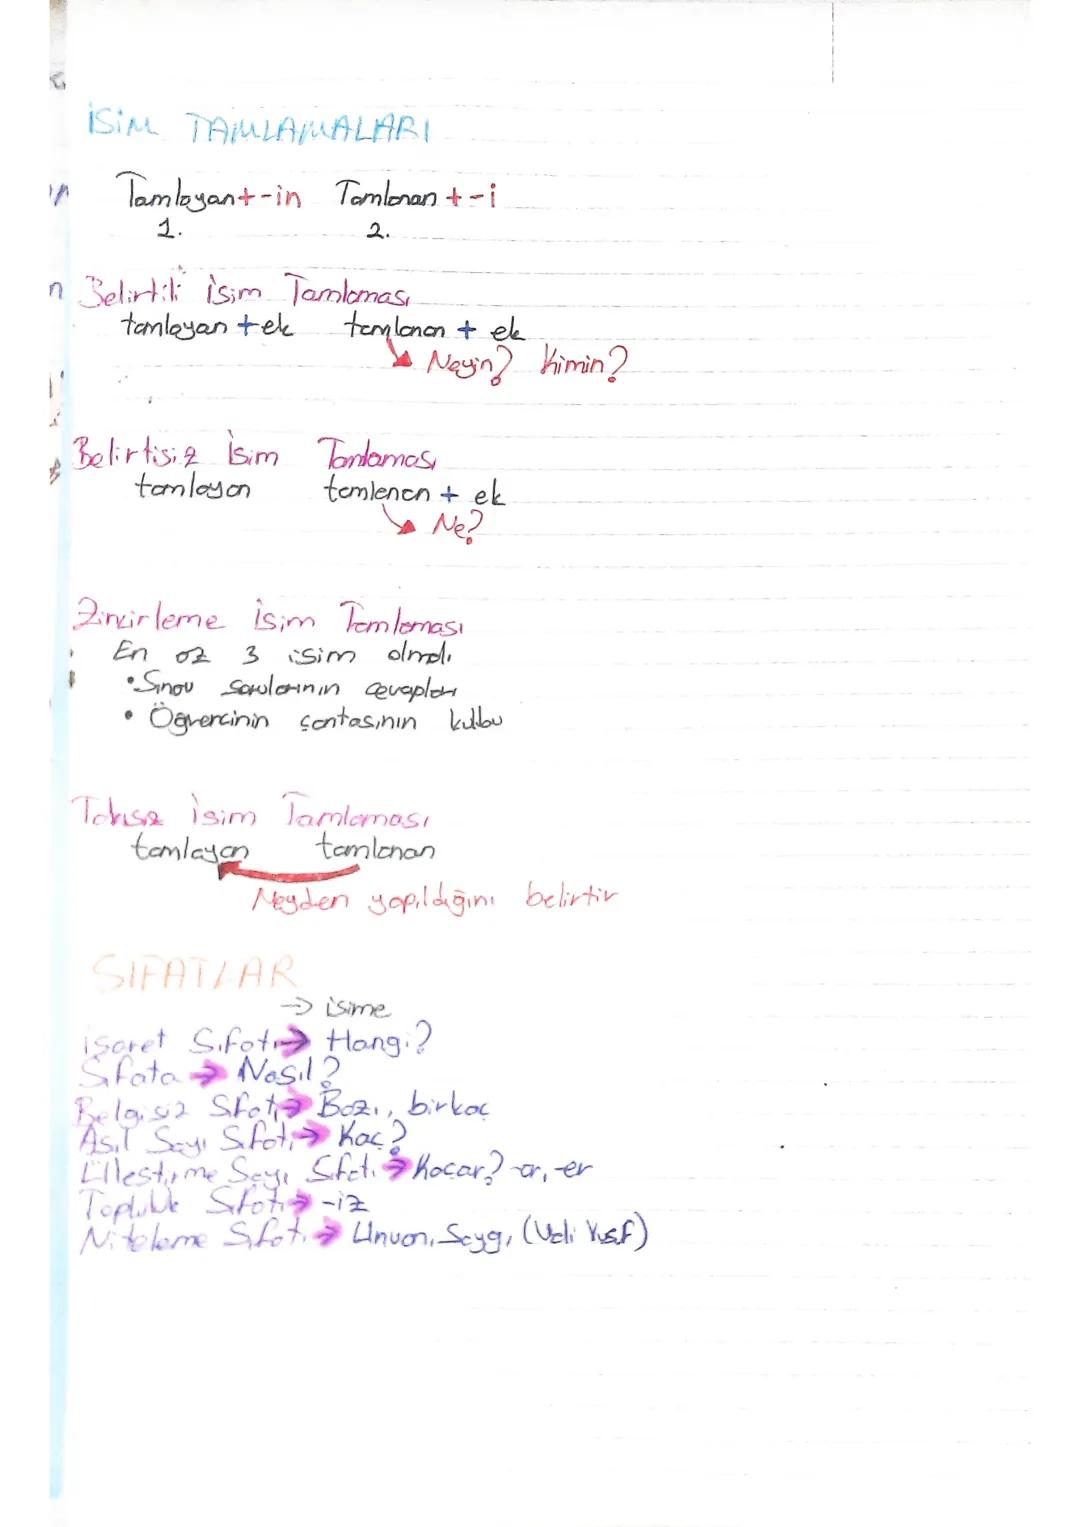 İSİM TAMLAMALARI
Tamlayan+-in Tamlanan +-i
1. 2.
Belirtili İsim Tamlaması
tamlayan +ek tamlanan + ek
Neyin? Kimin?
Belirtisiz İsim Tamlaması
tamlayan tamlanan + ek
Ne?
Zincirleme İsim Tamlaması
En az 3 isim olmalı
•Sınav sorularının cevapları
• Öğrencinin çantasının kulbu
Takısız İsim Tamlaması
tamlayan tamlanan
Neyden yapıldığını belirtir
SIFATLAR
→ isime
işaret Sıfatı→ Hangi?
Sıfata → Nasıl?
Belgisiz Sıfatı→ Bazı, birkaç
Asıl Sayı Sıfatı→ Kaç?
Üleştirme Sayı Sıfatı → Kaçar? -ar, -er
Topluluk Sıfatı→ -iz
Niteleme Sıfatı → Unvan, Saygı, (Veli Yusuf)